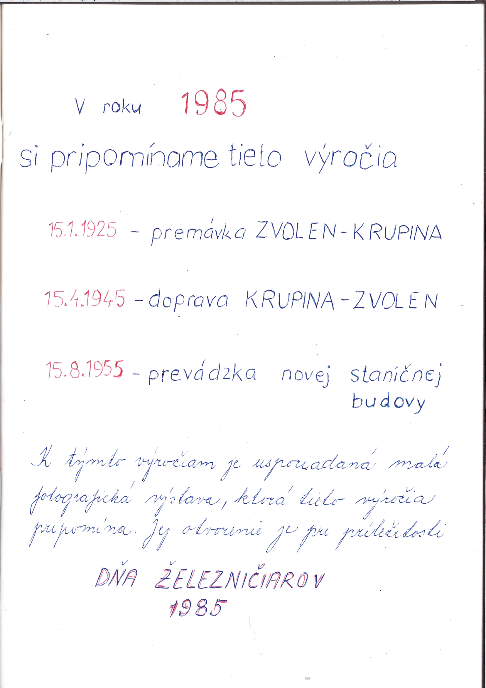 V roku 1985
si pripomíname tieto výročia
15.1.1925 - premávka ZVOLEN-KRUPINA
15.4.1945 - doprava KRUPINA-ZVOLEN
15.8.1955 - prevádzka novej staničnej
budovy
K týmto výročiam je usporiadaná malá
fotografická výstava, ktorá tieto výročia
pripomína. Jej otvorenie je pri príležitosti
DŇA ŽELEZNIČIAROV
1985